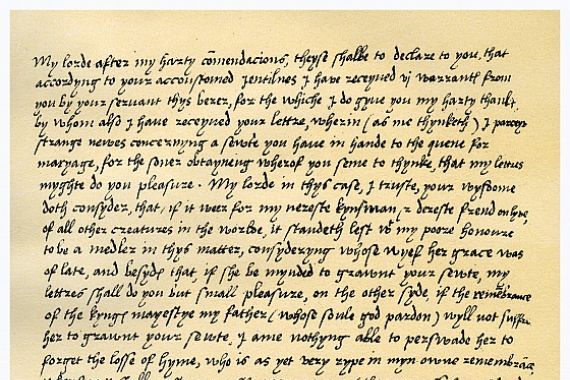 My lorde after my harty cōmendacions, theyse shalbe to declare to you, that
accordyng to your accoustomed jentilnes I have receyued vj warrantꝭ from
you by your servant thys berer, for the whiche I do gyue you my harty thankꝭ,
by whom also I have receyued your lettre, wherin (as me thynketh) I parceyv
strange newes concernyng a sewte you have in hande to the quene for
maryage, for the soner obtayneng wherof you seme to thynke, that my lettres
myghte do you pleasure. My lorde in thys case, I truste, your wysdome
doth consyder, that, if it weer for my nereste kynsman, & dereste frend on lyve,
of all other creatures in the worlde, it standeth lest wt my poore honoure
to be a medler in thys matter, consyderyng whose wyef her grace was
of late, and besyde that, if she be mynded to grawnt your sewte, my
lettres shall do you but small pleasure, on the other syde, if the remembrance
of the kyngs mayestye my father (whose soule god pardon) wyll not suffre
her to grawnt your sewte, I ame nothyng able to perswade her to
forget the losse of hyme, who is as yet very rype in myn owne remembrāce